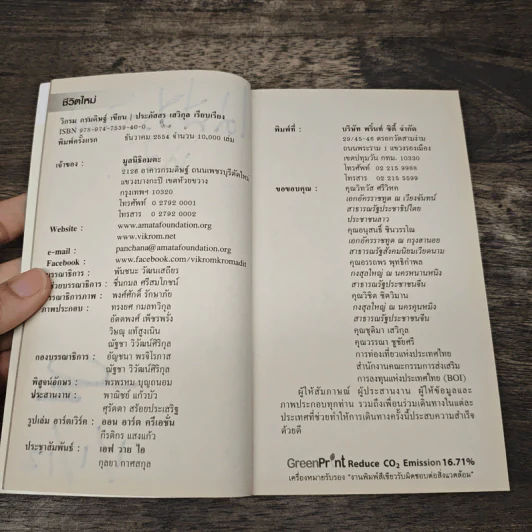 ชีวิตใหม่
วิกรม กรมดิษฐ์ เขียน | ประภัสสร เสวิกุล เรียบเรียง
ISBN 978-974-7539-40-0
พิมพ์ครั้งแรก ธันวาคม 2554 จำนวน 10,000 เล่ม
เจ้าของ : มูลนิธิอมตะ
2126 อาคารกรมดิษฐ์ ถนนเพชรบุรีตัดใหม่
แขวงบางกะปิ เขตห้วยขวาง
กรุงเทพฯ 10320
โทรศัพท์ 0 2792 0001
โทรสาร 0 2792 0002
Website : www.amatafoundation.org
www.vikrom.net
e-mail : panchana@amatafoundation.org
Facebook : www.facebook.com/vikromkromadit
บรรณาธิการ : พันชนะ วัฒนเสถียร
ช่วยบรรณาธิการ : ชื่นกมล ศรีสมโภชน์
บรรณาธิการภาพ : พงศ์ศักดิ์ รักษาภัย
ภาพประกอบ : ทรงยศ กมลทวิกุล
อัตตพงศ์ เพ็ชรพรั่ง
วิษณุ แท้สูงเนิน
ณัฐชา วิวัฒน์ศิริกุล
กองบรรณาธิการ : อัญชนา พรชิโรภาส
ณัฐชา วิวัฒน์ศิริกุล
พิสูจน์อักษร : พรพรหม บุญถนอม
ประสานงาน : พาณิชย์ แก้วบัว
สุรัตดา สร้อยประเสริฐ
รูปเล่ม อาร์ตเวิร์ค : ออน อาร์ต ครีเอชั่น
กีรติกร แสงแก้ว
ประชาสัมพันธ์ : เอฟ วาย ไอ
กุลยา กาศสกุล
พิมพ์ที่ : บริษัท พริ้นท์ ซิตี้ จำกัด
29/45-46 ตรอกวัดสามง่าม
ถนนพระราม 1 แขวงรองเมือง
เขตปทุมวัน กทม. 10330
โทรศัพท์ 02 215 9988
โทรสาร 02 215 5599
ขอขอบคุณ : คุณวิทวัส ศรีวิหค
เอกอัครราชทูต ณ เวียงจันทน์
สาธารณรัฐประชาธิปไตย
ประชาชนลาว
คุณอนุสนธิ์ ชินวรรโณ
เอกอัครราชทูต ณ กรุงฮานอย
สาธารณรัฐสังคมนิยมเวียดนาม
คุณอรรถพร พุทธิกำพล
กงสุลใหญ่ ณ นครหนานหนิง
สาธารณรัฐประชาชนจีน
คุณวิชิต ชิตวิมาน
กงสุลใหญ่ ณ นครคุนหมิง
สาธารณรัฐประชาชนจีน
คุณชุติมา เสวิกุล
คุณวรรณา ชูชัยศรี
การท่องเที่ยวแห่งประเทศไทย
สำนักงานคณะกรรมการส่งเสริม
การลงทุนแห่งประเทศไทย (BOI)
ผู้ให้สัมภาษณ์ ผู้ประสานงาน ผู้ให้ข้อมูลและ
ภาพประกอบทุกท่าน รวมถึงเพื่อนร่วมเดินทางในแต่ละ
ประเทศที่ช่วยทำให้การเดินทางครั้งนี้ประสบความสำเร็จ
ด้วยดี
GreenPrint Reduce CO₂ Emission 16.71%
เครื่องหมายรับรอง "งานพิมพ์สีเขียวรับผิดชอบต่อสิ่งแวดล้อม"